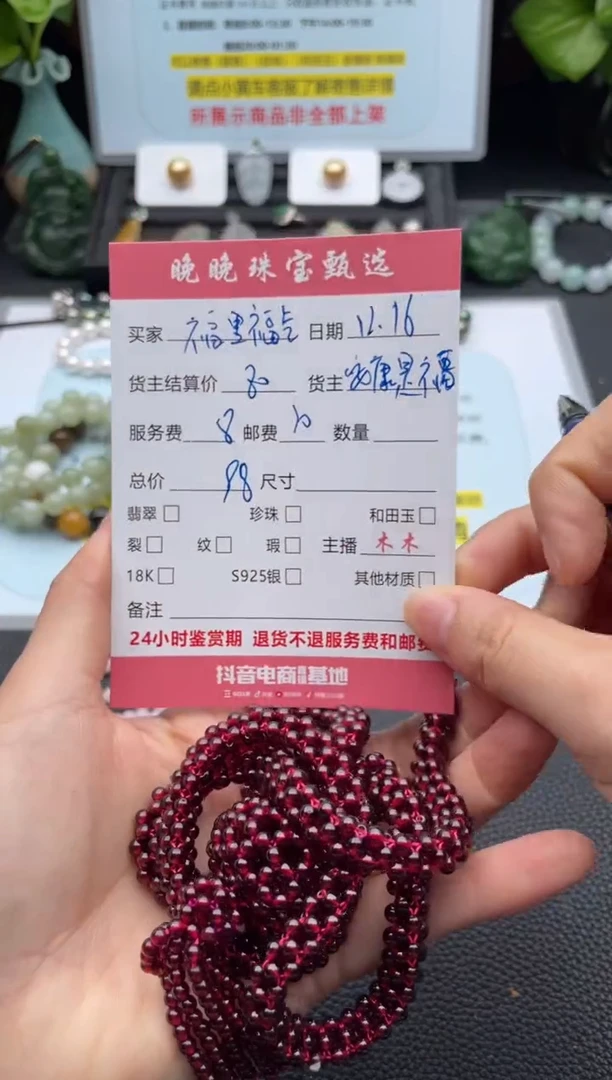 请点小黄车客服了解寄售详情
所展示商品非全部上架
晚晚珠宝甄选
买家 福里福气 日期 12.16
货主结算价 80 货主 安康是福
服务费 8 邮费 10 数量
总价 98 尺寸
翡翠 珍珠 和田玉
裂 纹 瑕 主播 木木
18K S925银 其他材质
备注
24小时鉴赏期 退货不退服务费和邮费
抖音电商直播基地